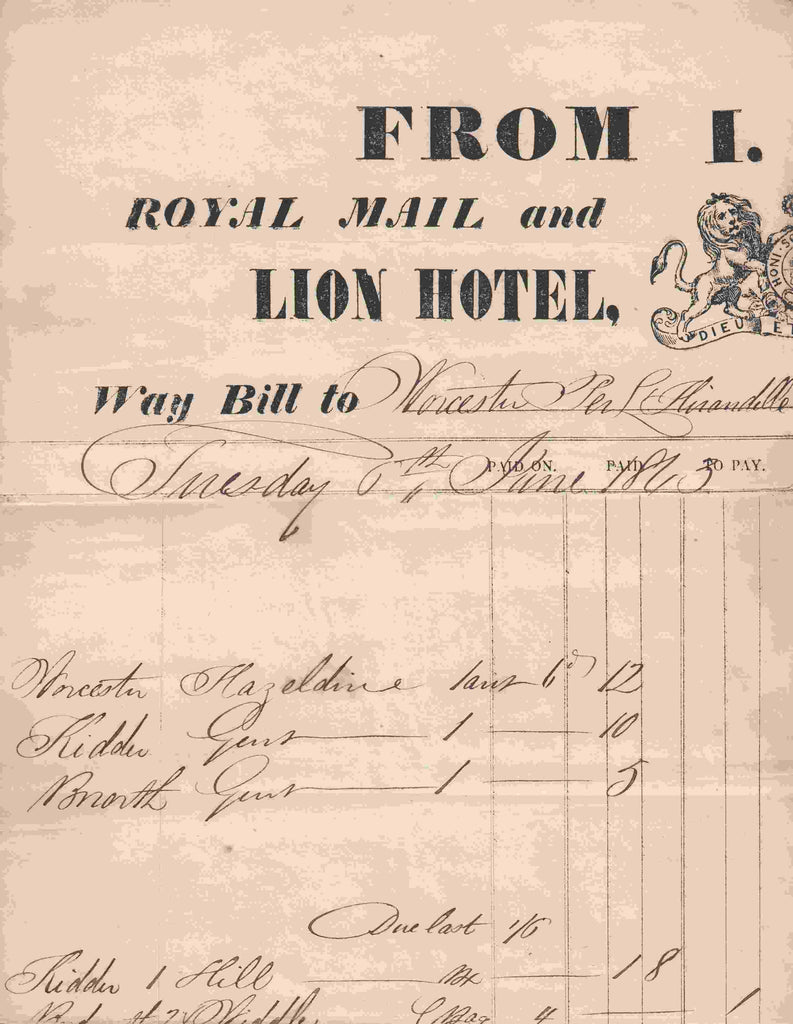 FROM I.
ROYAL MAIL and
LION HOTEL,
HONI SO
DIEU ET
Way Bill to Worcester Per L'Hirondelle
PAID ON. PAID TO PAY.
Tuesday 6th June 1865
Worcester Hazeldine 1 6d 12
Kidder Gent 1 10
Bnorth Gent 1 5
Due last 1/6
Kidder 1 Hill Bx 1 8
2 Bag 4 1